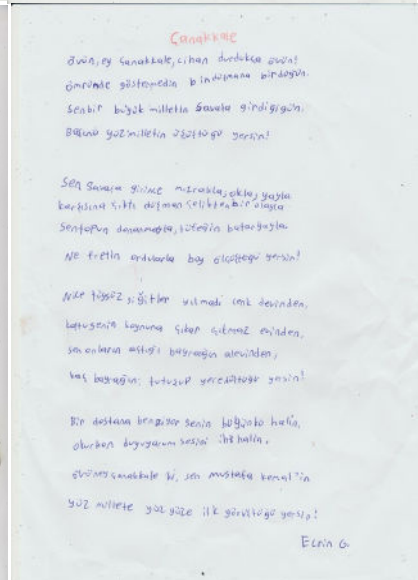 Çanakkale
Övün, ey Çanakkale, cihan durdukça övün!
Ömründe göstermedin bin düşmana bir düğün.
Sen bir büyük milletin savaşa girdiği gün,
Başına yüz milletin üşüştüğü yersin!
Sen savaşa girince mızrakla, okla, yayla
karşısına çıktı düşman çelikten bir alayla
Sen topun donanmayla, tüfeğin bataryayla
Ne fretin ordularla boy ölçüştüğü yersin!
Nice tüysüz yiğitler yılmadı cenk devinden,
koynuna çıkar çıkmaz evinden,
sen onların açtığı bayrağın alevinden,
kaç bayrağın tutuşup yere düştüğü yersin!
Bir destana benziyor senin bugünkü halin,
okurken duyuyorum sesini ihtilalin,
övün ey Çanakkale ki, sen Mustafa Kemal'in
yüz milletle yüz yüze ilk görüştüğü yersin!
G.